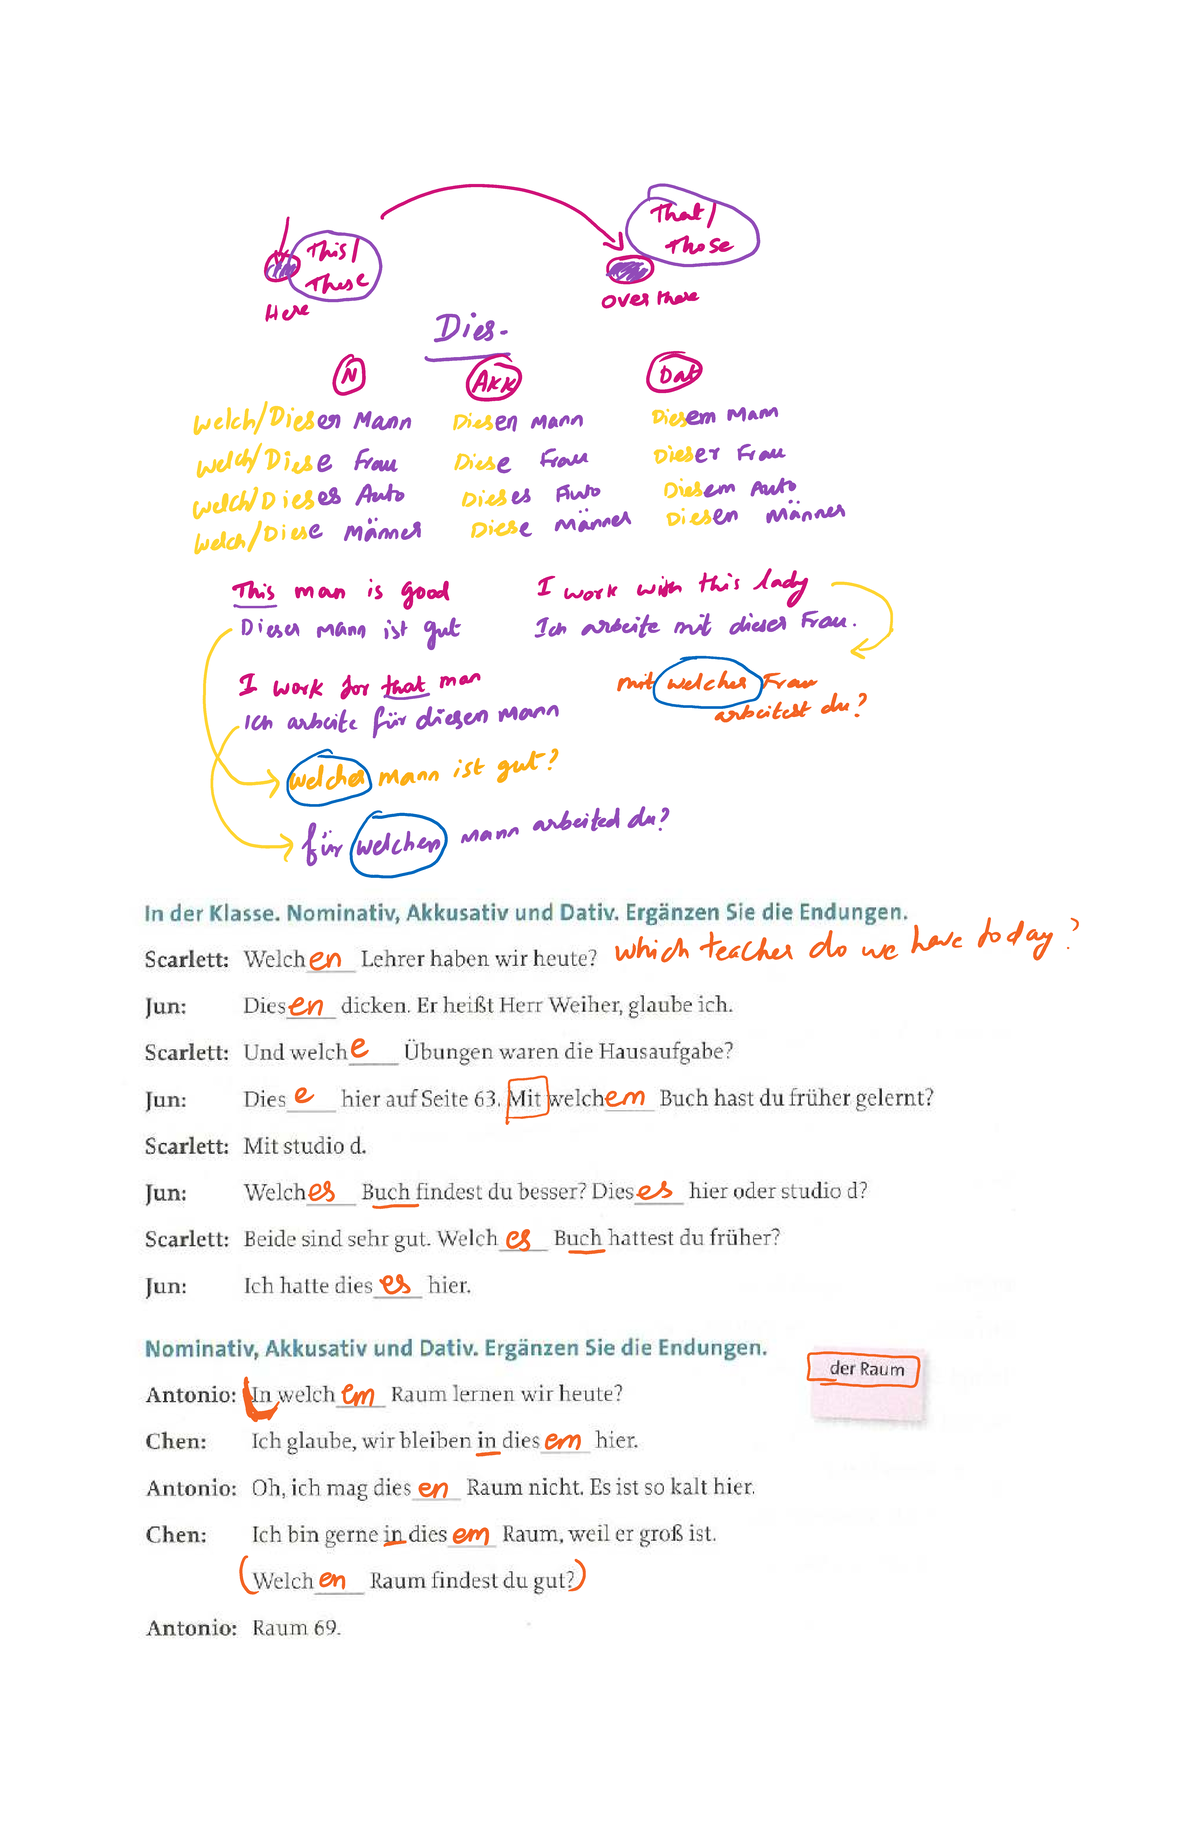 This/ These
That/ Those
Here
Over there
Dies-
N Akk Dat
Welch/Dieser Mann Diesen Mann Diesem Mann
Welch/Diese Frau Diese Frau Dieser Frau
Welch/Dieses Auto Dieses Auto Diesem Auto
Welch/Diese Männer Diese Männer Diesen Männer
This man is good I work with this lady
Dieser Mann ist gut Ich arbeite mit dieser Frau.
I work for that man mit welcher Frau
Ich arbeite für diesen Mann arbeitest du?
welcher mann ist gut?
für welchen mann arbeited du?
In der Klasse. Nominativ, Akkusativ und Dativ. Ergänzen Sie die Endungen.
Scarlett: Welchen Lehrer haben wir heute? which teacher do we have today?
Jun: Diesen dicken. Er heißt Herr Weiher, glaube ich.
Scarlett: Und welche Übungen waren die Hausaufgabe?
Jun: Diese hier auf Seite 63. Mit welchem Buch hast du früher gelernt?
Scarlett: Mit studio d.
Jun: Welches Buch findest du besser? Dieses hier oder studio d?
Scarlett: Beide sind sehr gut. Welches Buch hattest du früher?
Jun: Ich hatte dieses hier.
Nominativ, Akkusativ und Dativ. Ergänzen Sie die Endungen.
der Raum
Antonio: In welchem Raum lernen wir heute?
Chen: Ich glaube, wir bleiben in diesem hier.
Antonio: Oh, ich mag diesen Raum nicht. Es ist so kalt hier.
Chen: Ich bin gerne in diesem Raum, weil er groß ist.
(Welchen Raum findest du gut?)
Antonio: Raum 69.